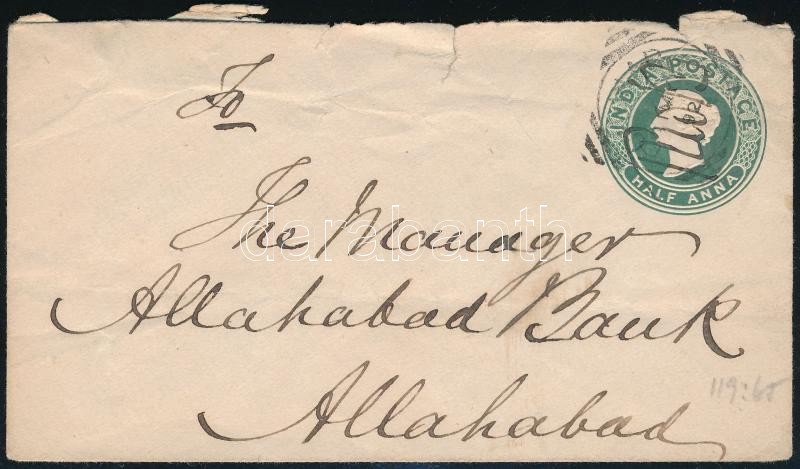 To
INDIA POSTAGE
HALF ANNA
The Manager
Allahabad Bank
Allahabad
darabanth
119:65